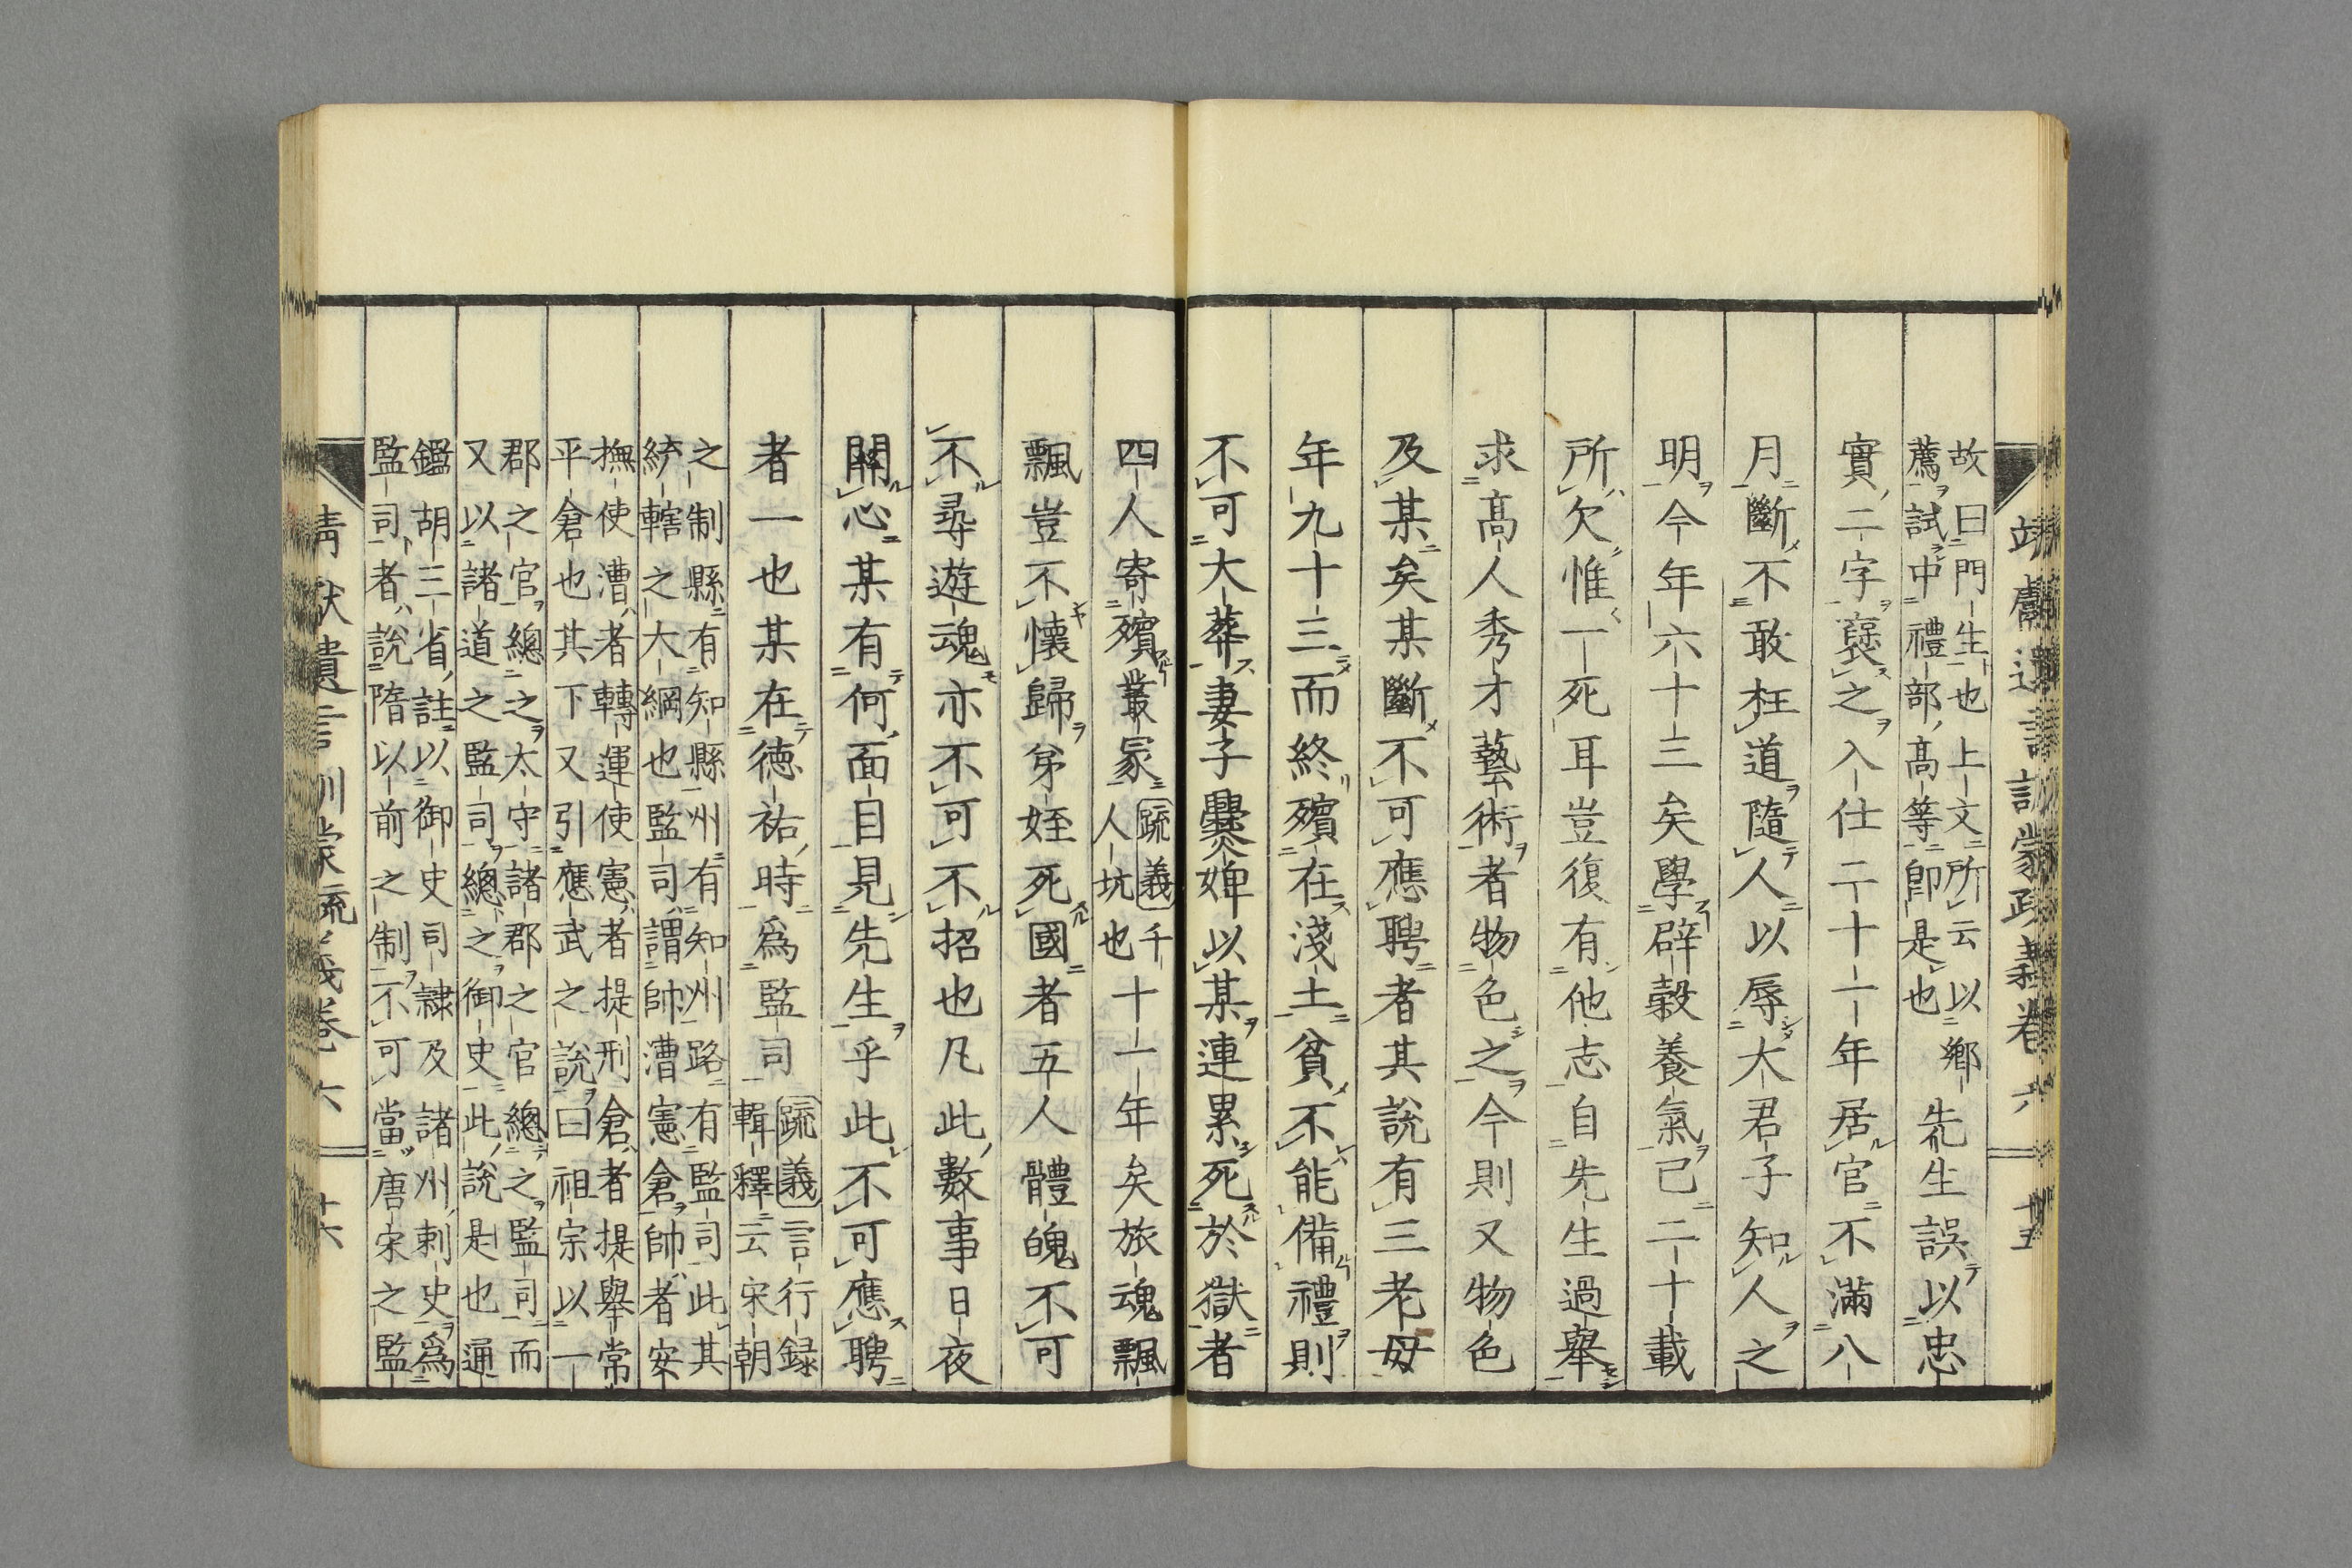 故曰門生也上文所云以鄉
薦試中禮部高等卽是也
先生誤以忠
實二字襃之入仕二十一年居官不滿八
月斷不敢枉道隨人以辱大君子知人之
明今年六十三矣學辟穀養氣已二十載
所欠惟一死耳豈復有他志自先生過舉
求高人秀才藝術者物色之今則又物色
及某矣某斷不可應聘者其說有三老母
年九十三而終殯在淺土貧不能備禮則
不可大葬妻子爨婢以某連累死於獄者
四人寄殯叢冢
疏義千
人坑也
十一年矣旅魂飄
飄豈不懷歸弟姪死國者五人體魄不可
不尋遊魂亦不可不招也凡此數事日夜
關心某有何面目見先生乎此不可應聘
者一也某在德祐時爲監司
疏義言行録
輯釋云宋朝
之制縣有知縣州有知州路有監司此其
統轄之大綱也監司謂帥漕憲倉帥者安
撫使漕者轉運使憲者提刑倉者提舉常
平倉也其下又引應武之說曰祖宗以一
郡之官總之太守諸郡之官總之監司而
又以諸道之監司總之御史此說是也通
鑑胡三省註以御史司隷及諸州刺史爲
監司者說隋以前之制不可當唐宋之監
靖獻遺言訓蒙疏義卷六
十五
靖獻遺言訓蒙疏義卷六
十六